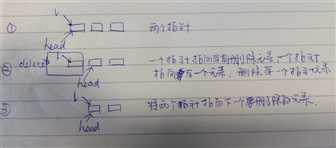 ① 两个指针
head
② delete 一个指针指向待删除元素，一个指针
指向下一个元素，删除第一个指针元素
head
③ 将两个指针指向下一个要删除的元素.
head